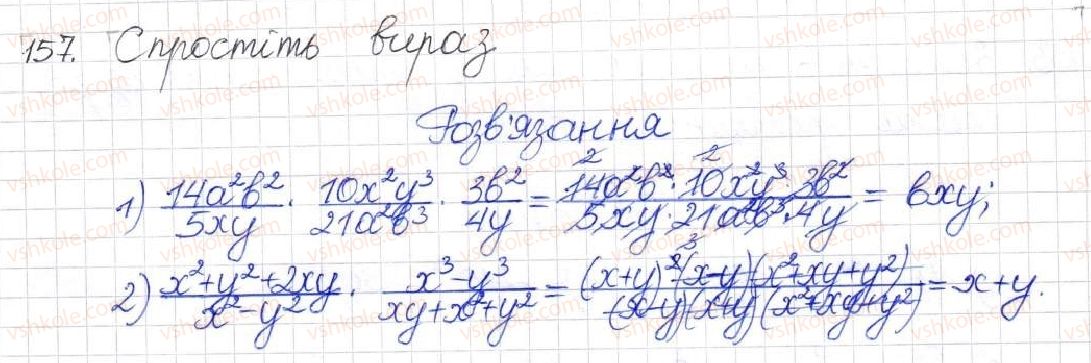 157. Спростіть вираз
Розв'язання
1) \frac{14a^2b^2}{5xy} \cdot \frac{10x^2y^3}{21a^2b^3} \cdot \frac{3b^2}{4y} = \frac{14a^2b^2 \cdot 10x^2y^3 \cdot 3b^2}{5xy \cdot 21a^2b^3 \cdot 4y} = bxy;
2) \frac{x^2+y^2+2xy}{x^2-y^2} \cdot \frac{x^3-y^3}{xy+x^2+y^2} = \frac{(x+y)^2(x-y)(x^2+xy+y^2)}{(x-y)(x+y)(x^2+xy+y^2)} = x+y.